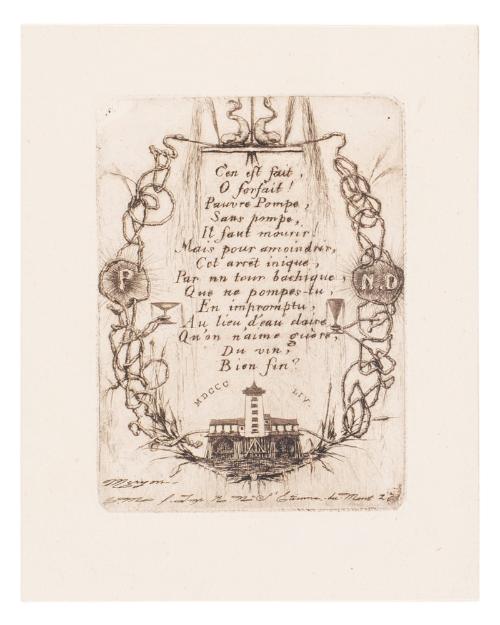 C'en est fait,
O forfait!
Pauvre Pompe,
Sans pompe,
Il faut mourir!
Mais pour amoindrir,
Cet arrêt inique,
Par un tour bachique,
P
N.D
Que ne pompes-tu,
En impromptu,
Au lieu d'eau claire
Qu'on n'aime guère,
Du vin,
Bien fin?
MDCCC LIV
Meryon
St Etienne-du-Mont 26